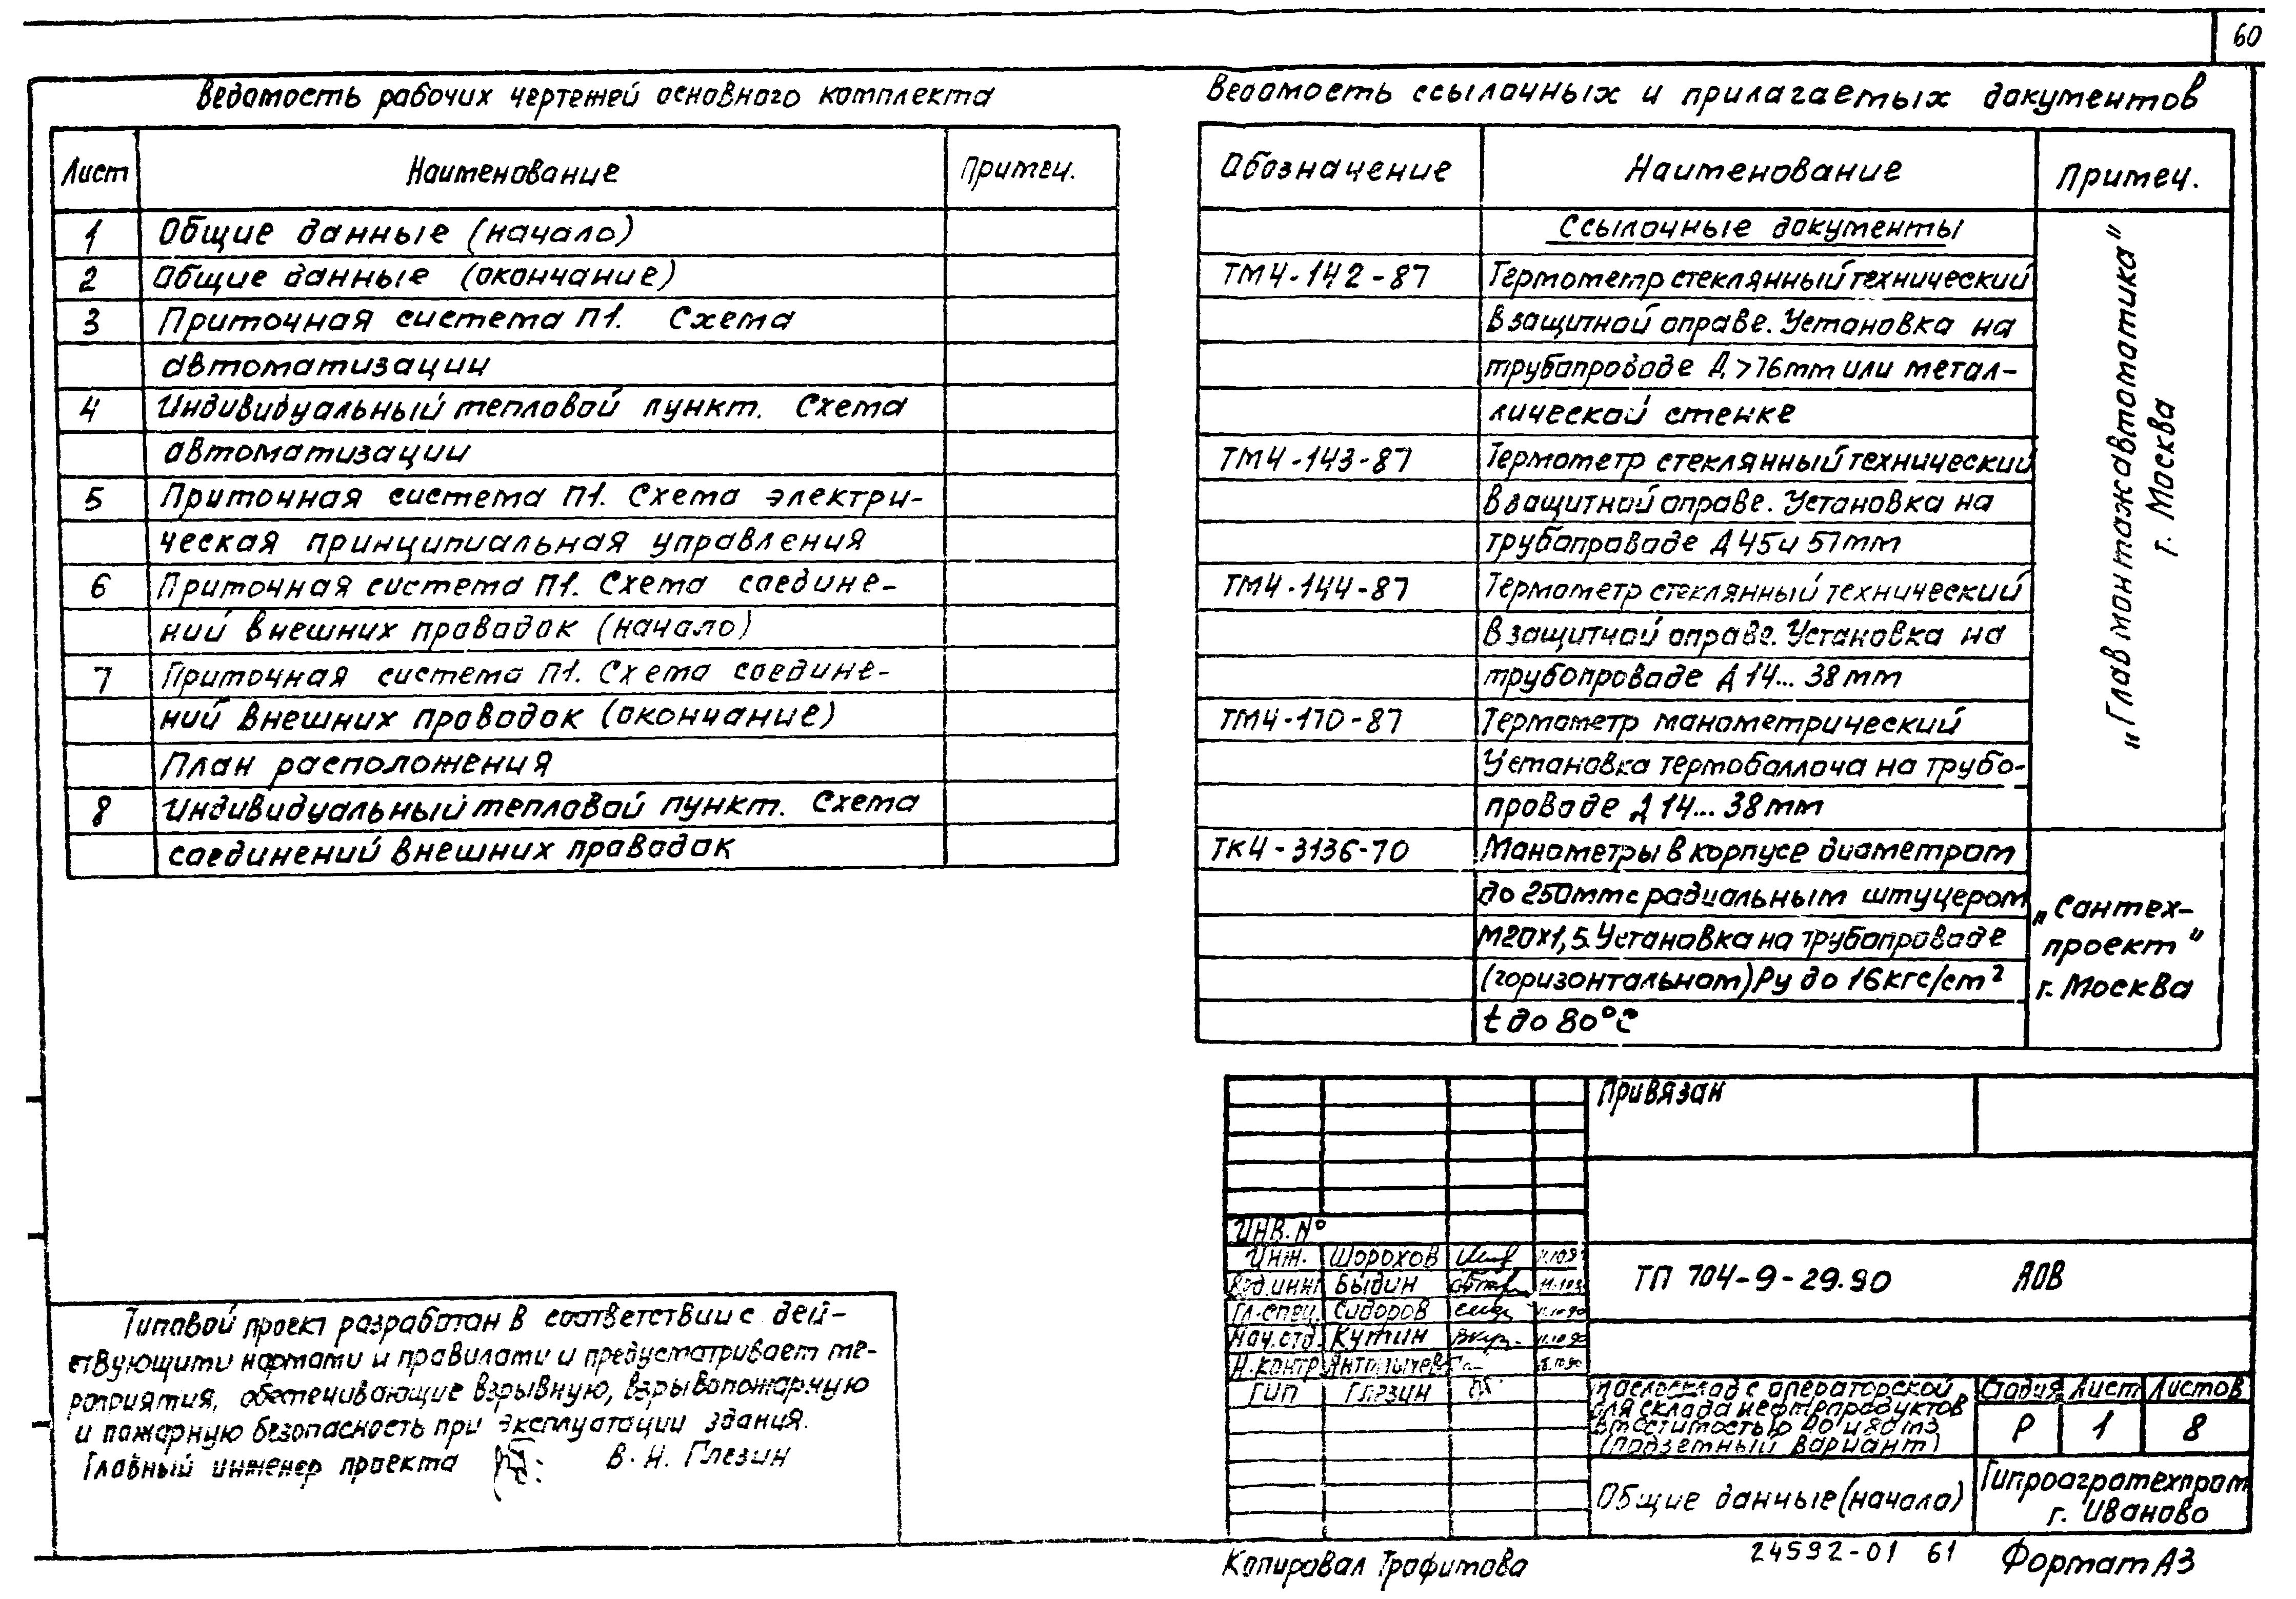 60
Ведомость рабочих чертежей основного комплекта
Лист Наименование Примеч.
1 Общие данные (начало)
2 Общие данные (окончание)
3 Приточная система П1. Схема
автоматизации
4 Индивидуальный тепловой пункт. Схема
автоматизации
5 Приточная система П1. Схема электри-
ческая принципиальная управления
6 Приточная система П1. Схема соедине-
ний внешних проводок (начало)
7 Приточная система П1. Схема соедине-
ний внешних проводок (окончание)
План расположения
8 Индивидуальный тепловой пункт. Схема
соединений внешних проводок
Ведомость ссылочных и прилагаемых документов
Обозначение Наименование Примеч.
Ссылочные документы
ТМ4-142-87 Термометр стеклянный технический
в защитной оправе. Установка на
трубопроводе Д >76мм или метал-
лической стенке
ТМ4-143-87 Термометр стеклянный технический
в защитной оправе. Установка на
трубопроводе Д 45 и 57мм
ТМ4-144-87 Термометр стеклянный технический
в защитной оправе. Установка на
трубопроводе Д 14... 38мм
ТМ4-170-87 Термометр манометрический
Установка термобаллона на трубо-
проводе Д 14... 38мм
„Главмонтажавтоматика"
г. Москва
ТК4-3136-70 Манометры в корпусе диаметром
до 250мм с радиальным штуцером
М20х1,5. Установка на трубопроводе
(горизонтальном) Ру до 16кгс/cm²
t до 80°С
„Сантех-
проект"
г. Москва
Типовой проект разработан в соответствии с дей-
ствующими нормами и правилами и предусматривает ме-
роприятия, обеспечивающие взрывную, взрывопожарную
и пожарную безопасность при эксплуатации здания.
Главный инженер проекта В. Н. Глезин
Привязан
Инв. №
Инж. Шорохов
Вед.инж Быдин
Гл.спец. Сидоров
Нач.отд. Кутин
Н.контр
ГИП Глезин
ТП 704-9-29.90 АОВ
Маслосклад с операторской
для склада нефтепродуктов
вместимостью и 80 м3
(подземный вариант)
Стадия Лист Листов
Р 1 8
Общие данные (начало)
Гипроагротехпром
г. Иваново
Копировал Трофимова
24592-01 61
Формат А3